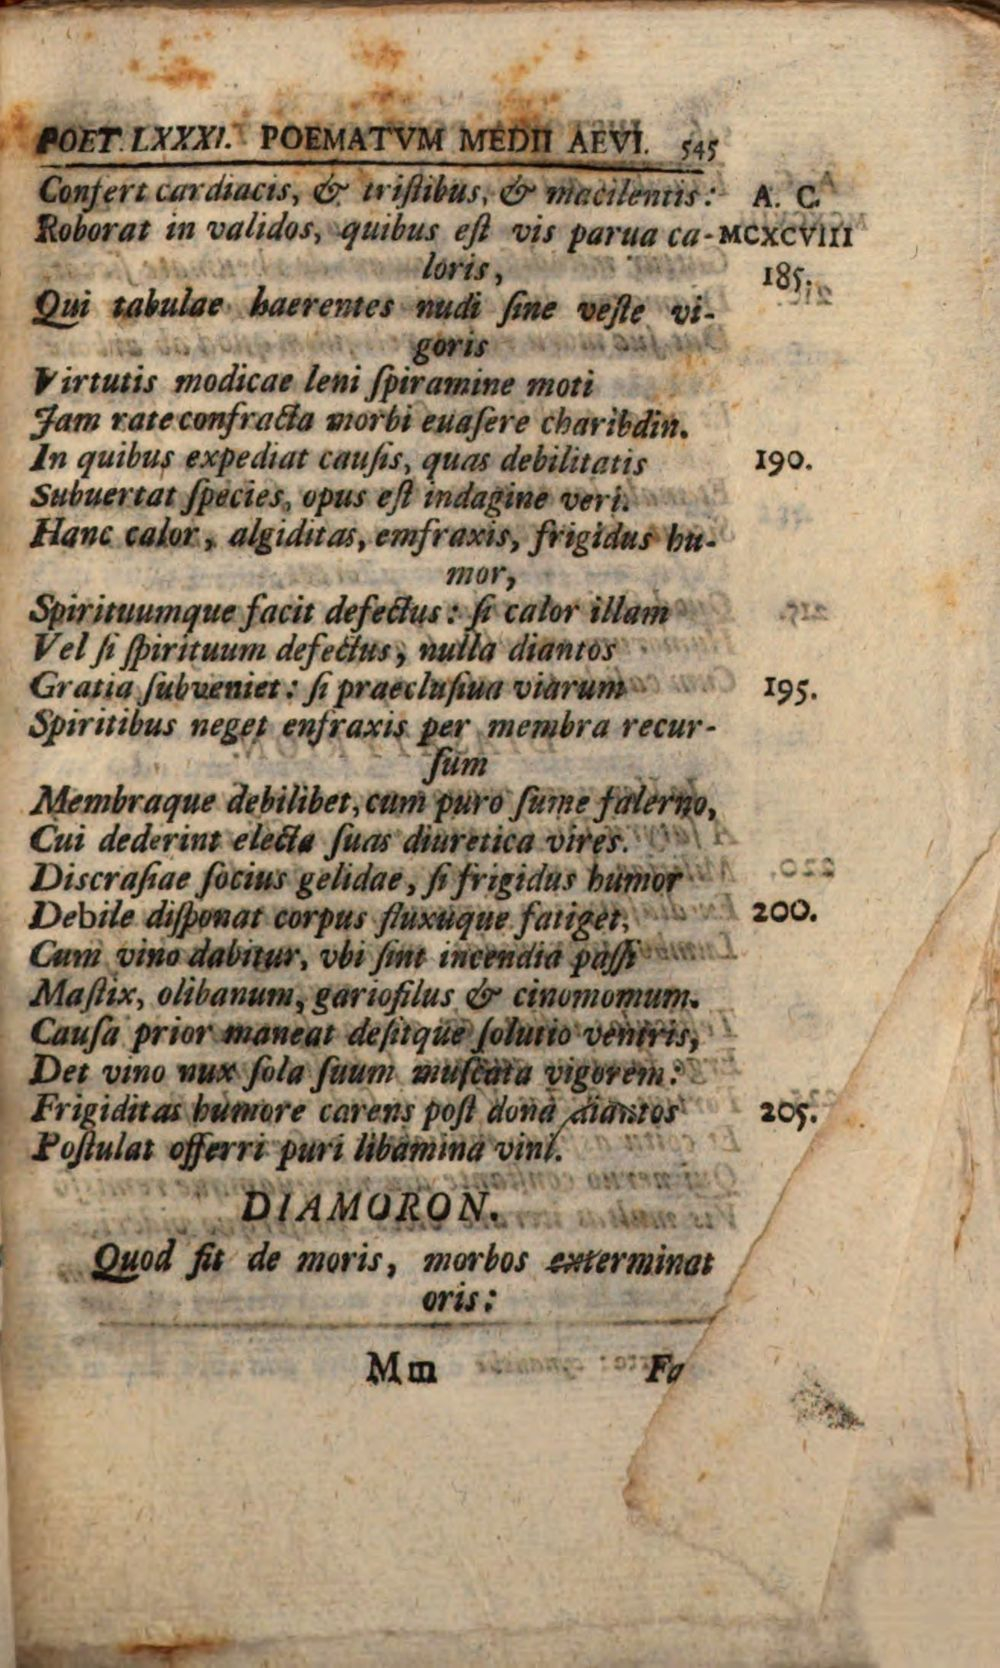 POET. LXXXI. POEMATVM MEDII AEVI. 545
Confert cardiacis, & triſtibus, & macilentis: A. C.
Roborat in validos, quibus eſt vis parua ca- MCXCVIII
loris, 185.
Qui tabulae haerentes nudi ſine veſte vi-
goris
Virtutis modicae leni ſpiramine moti
Jam rate confracta morbi euaſere charibdin.
In quibus expediat cauſis, quas debilitatis 190.
Subuertat ſpecies, opus eſt indagine veri.
Hanc calor, algiditas, emfraxis, frigidus hu-
mor,
Spirituumque facit defectus: ſi calor illam
Vel ſi ſpirituum defectus, nulla diantos
Gratia ſubveniet: ſi praecluſiua viarum 195.
Spiritibus neget enfraxis per membra recur-
ſum
Membraque debilibet, cum puro ſume falerno,
Cui dederint electa ſuas diuretica vires.
Discraſiae ſocius gelidae, ſi frigidus humor
Debile diſponat corpus fluxuque fatiget, 200.
Cum vino dabitur, vbi ſint incendia paſſi
Maſtix, olibanum, gariofilus & cinomomum.
Cauſa prior maneat deſitque ſolutio ventris,
Det vino nux ſola ſuum muſcata vigorem:
Frigiditas humore carens poſt dona diantos 205.
Poſtulat offerri puri libamina vini.
DIAMORON.
Quod fit de moris, morbos exterminat
oris:
Mm Fa